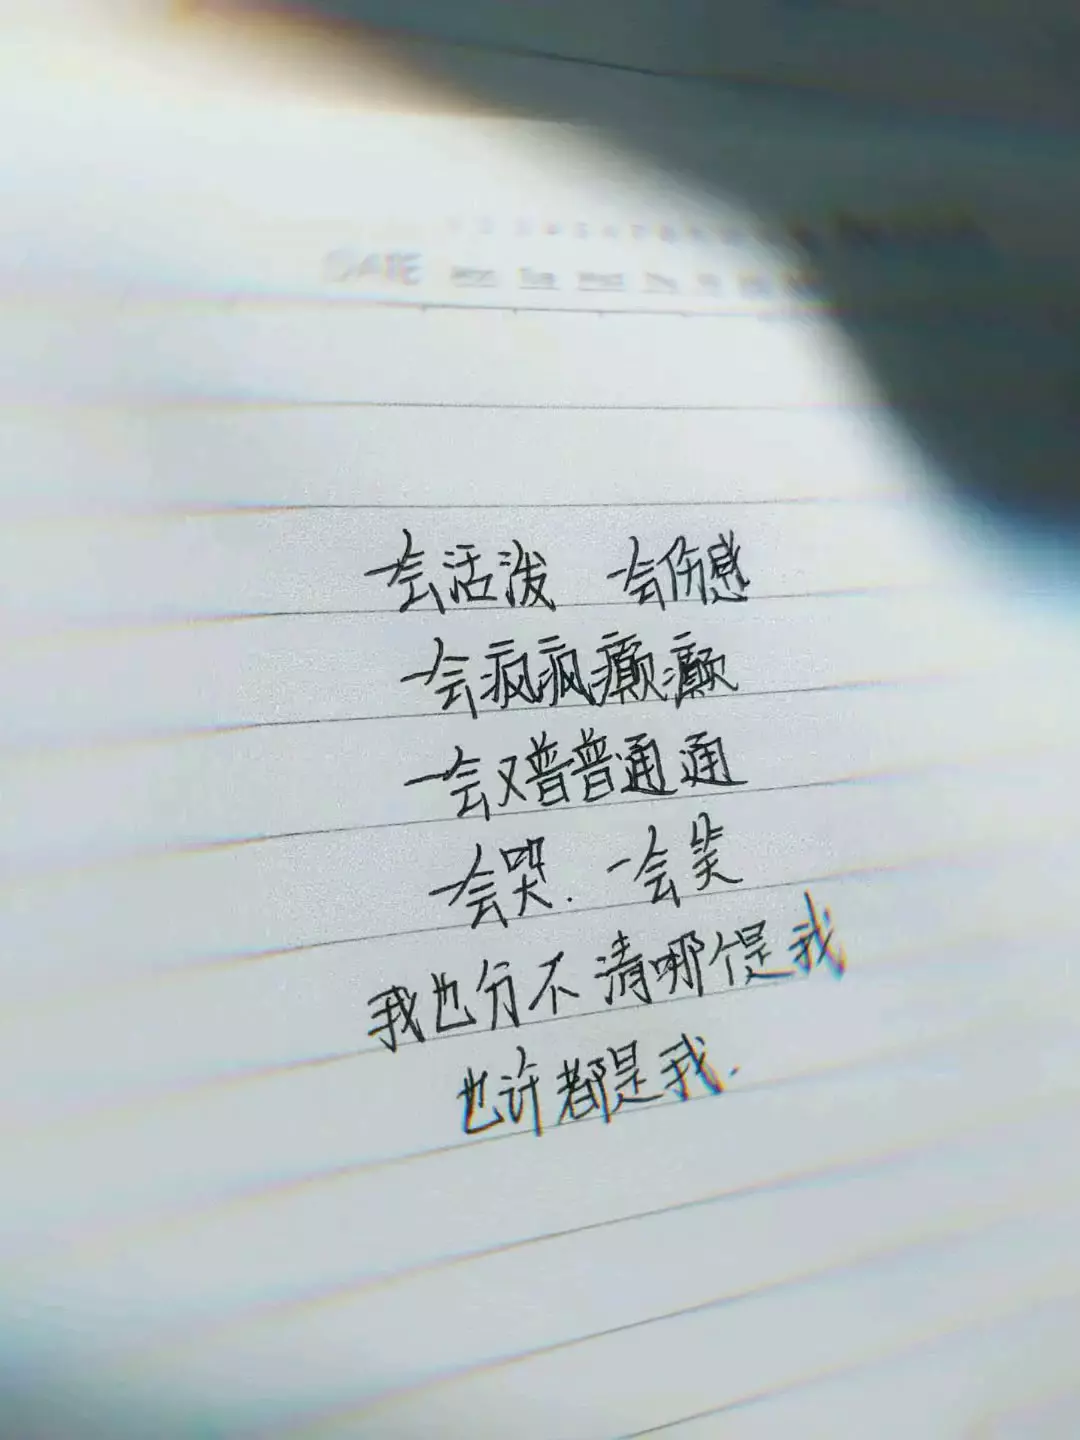 DATE
一会活泼 一会伤感
一会疯疯癫癫
一会又普普通通
一会哭. 一会笑
我也分不清哪个是我
也许都是我.